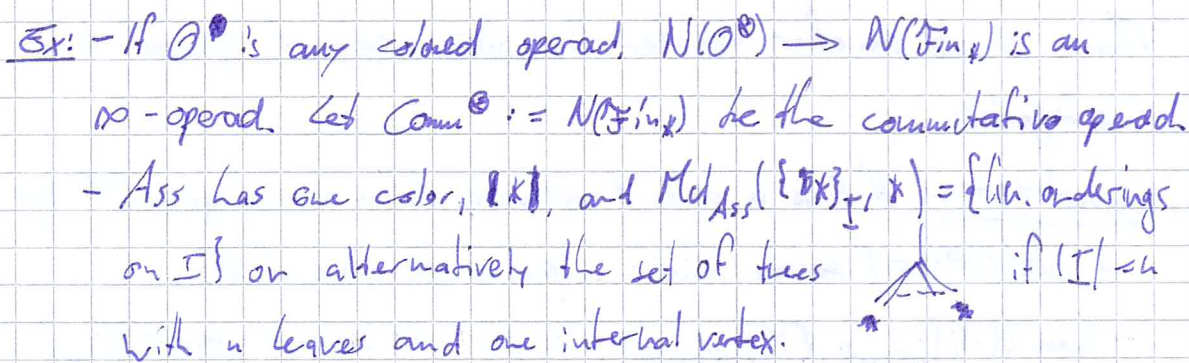 Ex: - If O^⊗ is any colored operad, N(O^⊗) → N(Fin_*) is an
∞-operad. Let Comm^⊗ := N(Fin_*) be the commutative operad
- Ass has one color, *, and Mul_Ass({*}_I, *) = {lin. orderings
on I} or alternatively the set of trees if |I| = n
with n leaves and one internal vertex.